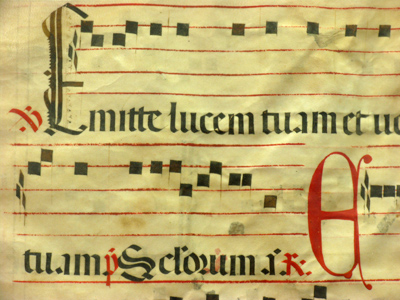 ℣ Emitte lucem tuam et ve
tuam ps Sclorum a. R. E